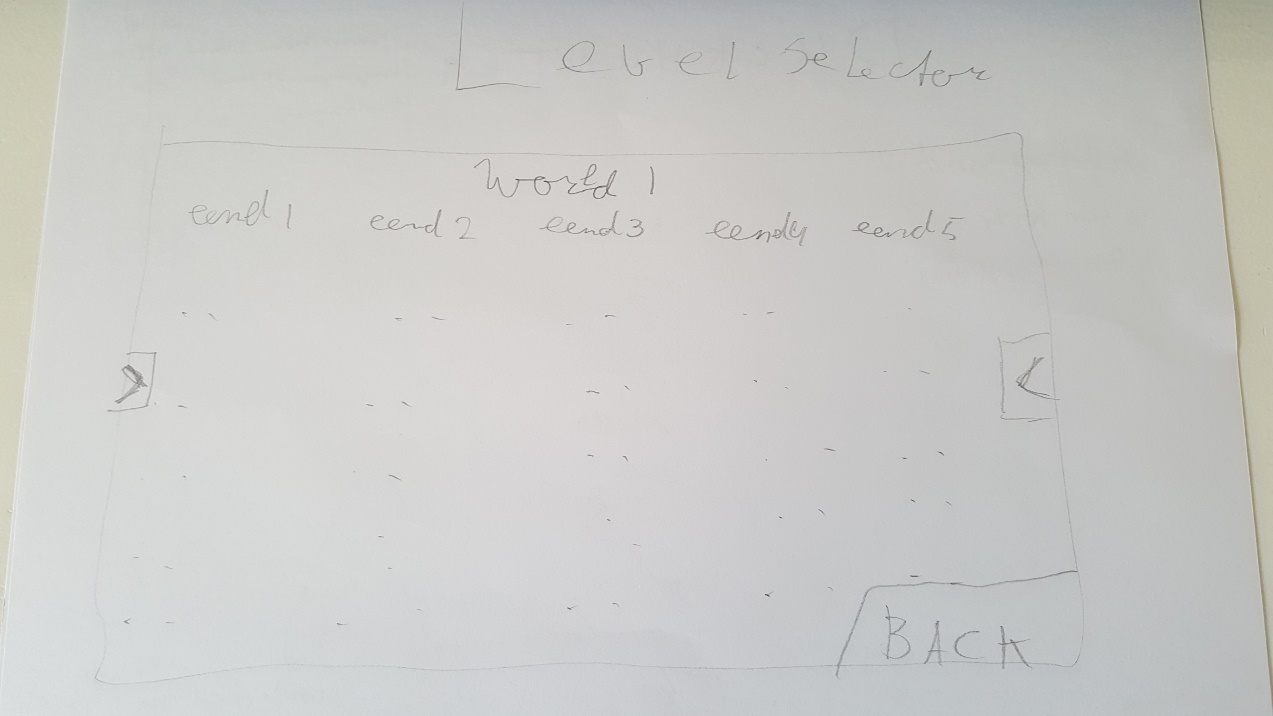 Level Selector
World 1
eend 1 eend 2 eend 3 eend4 eend 5
> <
BACK